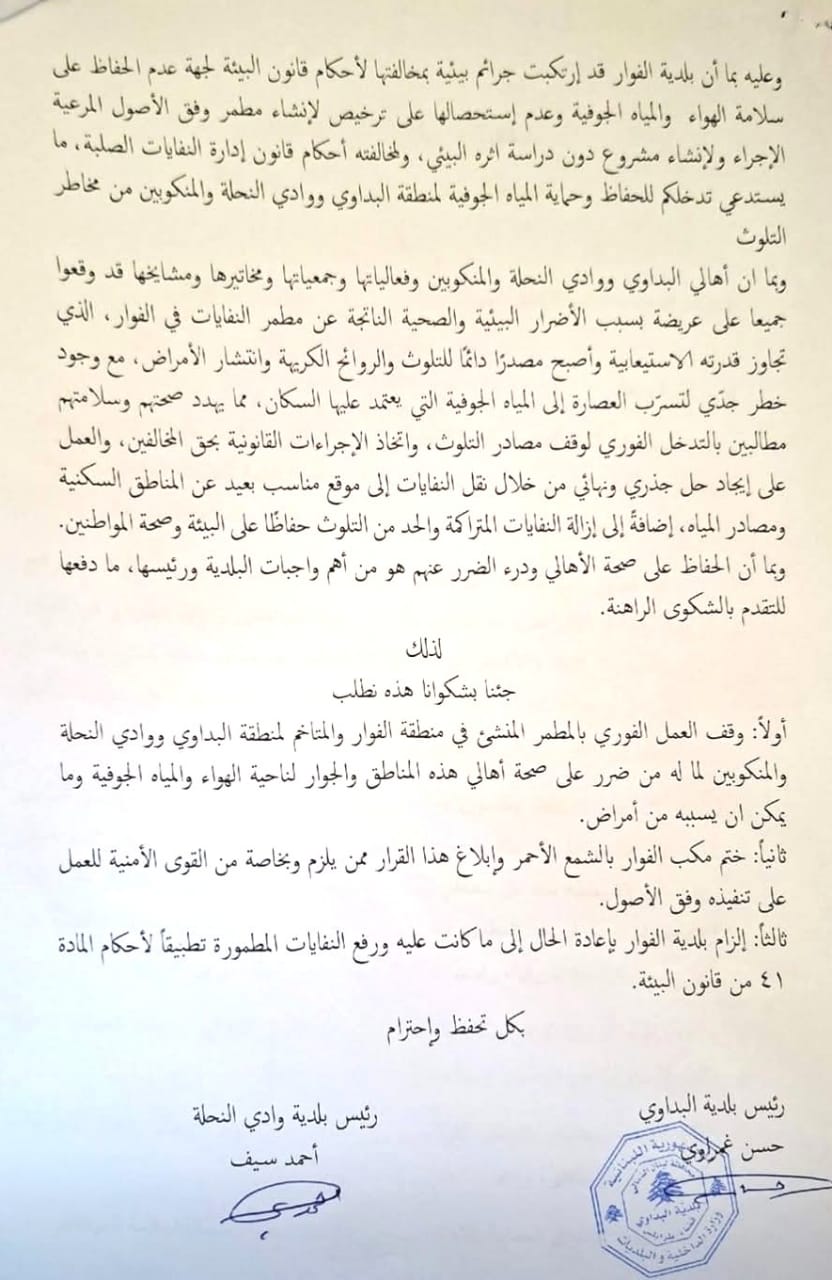 وعليه بما أن بلدية الفوار قد إرتكبت جرائم بيئية بمخالفتها لأحكام قانون البيئة لجهة عدم الحفاظ على
سلامة الهواء والمياه الجوفية وعدم إستحصالها على ترخيص لإنشاء مطمر وفق الأصول المرعية
الإجراء ولإنشاء مشروع دون دراسة اثره البيئي، ولمخالفته أحكام قانون إدارة النفايات الصلبة، ما
يستدعي تدخلكم للحفاظ وحماية المياه الجوفية لمنطقة البداوي ووادي النحلة والمنكوبين من مخاطر
التلوث
وبما ان أهالي البداوي ووادي النحلة والمنكوبين وفعالياتها وجمعياتها ومخاتيرها ومشايخها قد وقعوا
جميعا على عريضة بسبب الأضرار البيئية والصحية الناتجة عن مطمر النفايات في الفوار، الذي
تجاوز قدرته الاستيعابية وأصبح مصدرًا دائمًا للتلوث والروائح الكريهة وانتشار الأمراض، مع وجود
خطر جدّي لتسرّب العصارة إلى المياه الجوفية التي يعتمد عليها السكان، مما يهدد صحتهم وسلامتهم
مطالبين بالتدخل الفوري لوقف مصادر التلوث، واتخاذ الإجراءات القانونية بحق المخالفين، والعمل
على إيجاد حل جذري ونهائي من خلال نقل النفايات إلى موقع مناسب بعيد عن المناطق السكنية
ومصادر المياه، إضافةً إلى إزالة النفايات المتراكمة والحد من التلوث حفاظًا على البيئة وصحة المواطنين.
وبما أن الحفاظ على صحة الأهالي ودرء الضرر عنهم هو من أهم واجبات البلدية ورئيسها، ما دفعها
للتقدم بالشكوى الراهنة.
لذلك
جئنا بشكوانا هذه نطلب
أولاً: وقف العمل الفوري بالمطمر المنشئ في منطقة الفوار والمتاخم لمنطقة البداوي ووادي النحلة
والمنكوبين لما له من ضرر على صحة أهالي هذه المناطق والجوار لناحية الهواء والمياه الجوفية وما
يمكن ان يسببه من أمراض.
ثانياً: ختم مكب الفوار بالشمع الأحمر وإبلاغ هذا القرار ممن يلزم وبخاصة من القوى الأمنية للعمل
على تنفيذه وفق الأصول.
ثالثاً: إلزام بلدية الفوار بإعادة الحال إلى ما كانت عليه ورفع النفايات المطمورة تطبيقاً لأحكام المادة
٤١ من قانون البيئة.
بكل تحفظ وإحترام
رئيس بلدية البداوي
حسن غمراوي
رئيس بلدية وادي النحلة
أحمد سيف
الجمهورية اللبنانية
بلدية البداوي
وزارة الداخلية و البلديات